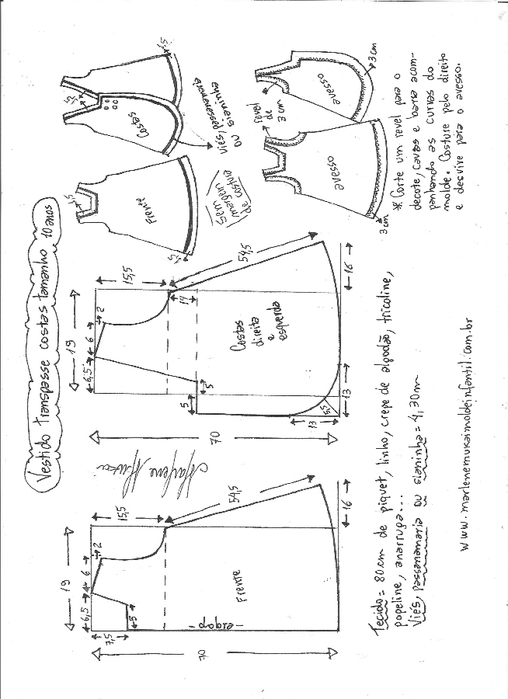 Vestido transpasse costas tamanho 10 anos
19
6,5
6
2
15,5
7,5
5
54,5
16
70
Frente
dobra
Marlene Mukai
19
6,5
6
2
15,5
11
5
5
54,5
16
13
5,5
13
70
Costas
direita
e
esquerda
1,5
1,5
Frente
Sem
margem
de costura
1,5
1,5
Costas
Viés, passamanaria
ou sianinha
revel
de
3 cm
avesso
3 cm
avesso
3 cm
* Corte um revel para o
decote, cavas e barra acom-
panhando as curvas do
molde. Costure pelo direito
e desvire para o avesso.
Tecido = 80 cm de piquet, linho, crepe de algodão, tricoline,
popeline, anarruga...
Viés, passamanaria ou sianinha = 4,30 m
www.marlenemukaimoldeinfantil.com.br